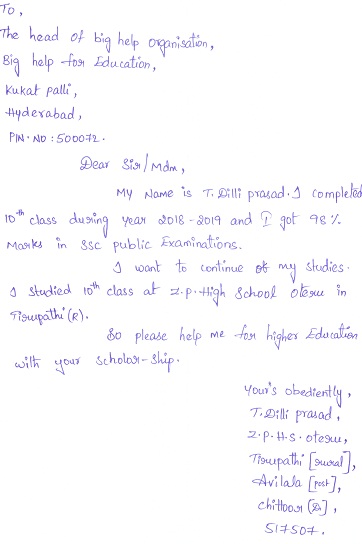 To,
The head of big help organisation,
Big help for Education,
Kukat palli,
Hyderabad,
PIN. NO : 500072.
Dear Sir/Mdm,
My Name is T. Dilli prasad. I completed
10th class during year 2018-2019 and I got 98%
Marks in SSC public Examinations.
I want to continue of my studies.
I studied 10th class at Z.P. High School Oteru in
Tirupathi (R).
So please help me for higher Education
with your scholar-ship.
Your's obediently,
T. Dilli prasad,
Z.P.H.S. oteru,
Tirupathi [rural],
Avilala [post],
chittoor [D],
517507.